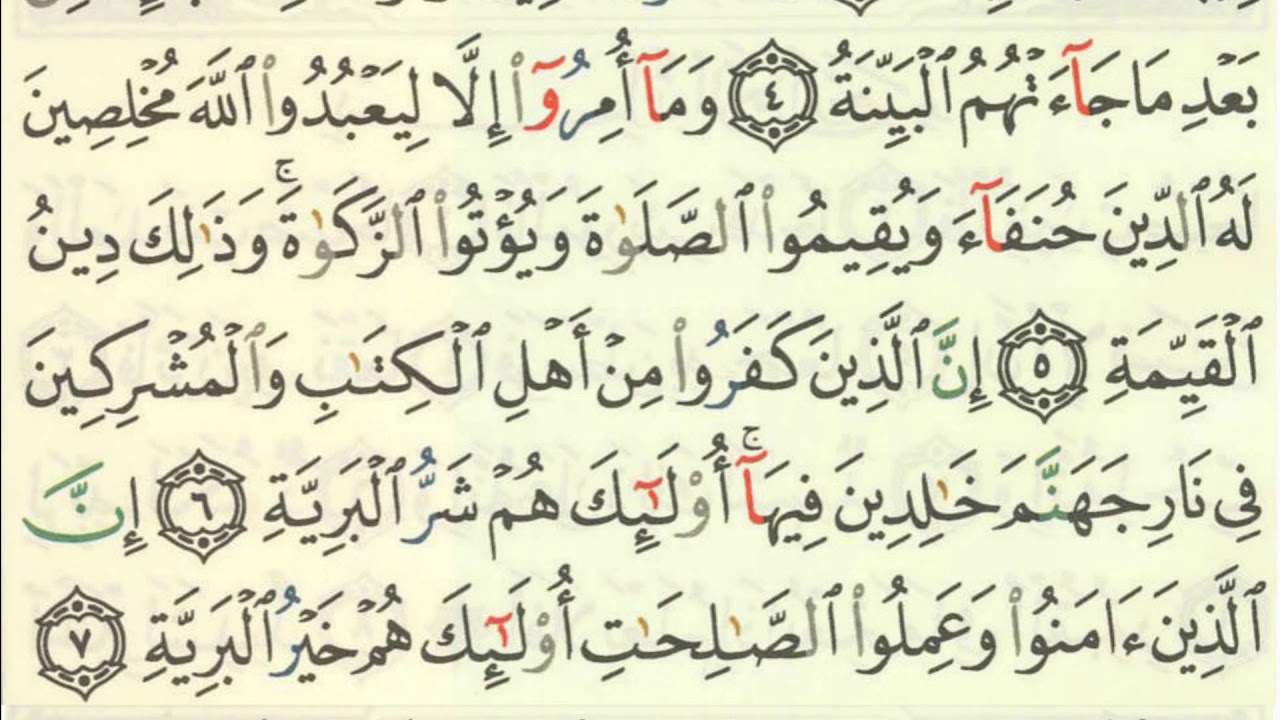 بَعْدِ مَا جَآءَتْهُمُ ٱلْبَيِّنَةُ ٤ وَمَآ أُمِرُوٓا۟ إِلَّا لِيَعْبُدُوا۟ ٱللَّهَ مُخْلِصِينَ
لَهُ ٱلدِّينَ حُنَفَآءَ وَيُقِيمُوا۟ ٱلصَّلَوٰةَ وَيُؤْتُوا۟ ٱلزَّكَوٰةَ ۚ وَذَٰلِكَ دِينُ
ٱلْقَيِّمَةِ ٥ إِنَّ ٱلَّذِينَ كَفَرُوا۟ مِنْ أَهْلِ ٱلْكِتَٰبِ وَٱلْمُشْرِكِينَ
فِى نَارِ جَهَنَّمَ خَٰلِدِينَ فِيهَآ ۚ أُو۟لَٰٓئِكَ هُمْ شَرُّ ٱلْبَرِيَّةِ ٦ إِنَّ
ٱلَّذِينَ ءَامَنُوا۟ وَعَمِلُوا۟ ٱلصَّٰلِحَٰتِ أُو۟لَٰٓئِكَ هُمْ خَيْرُ ٱلْبَرِيَّةِ ٧